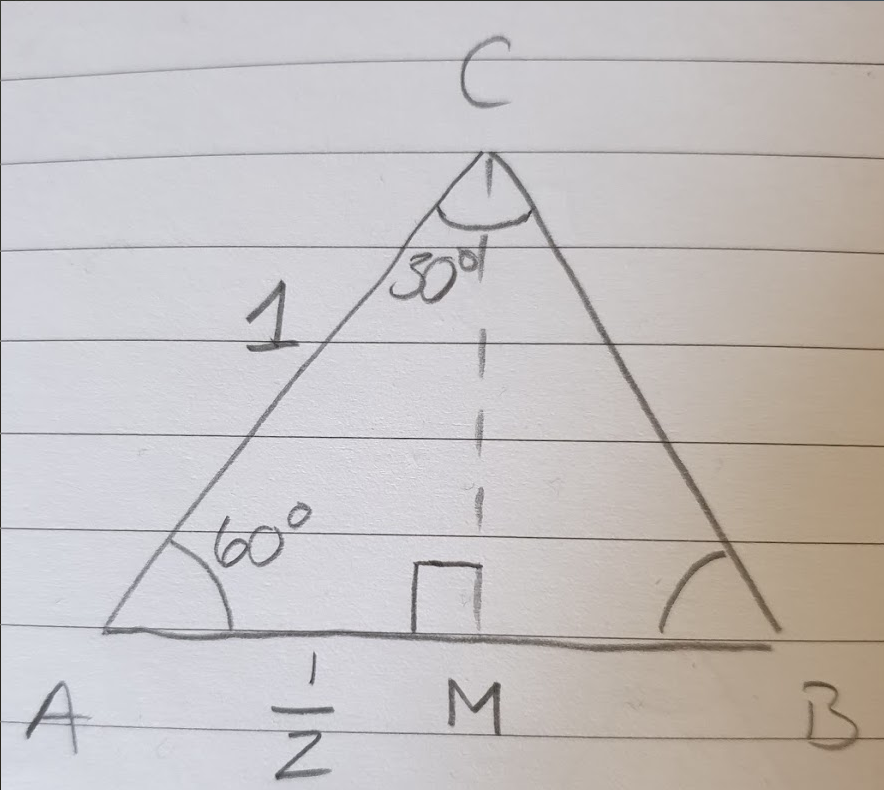 C
30°
1
60°
A
1/2
M
B